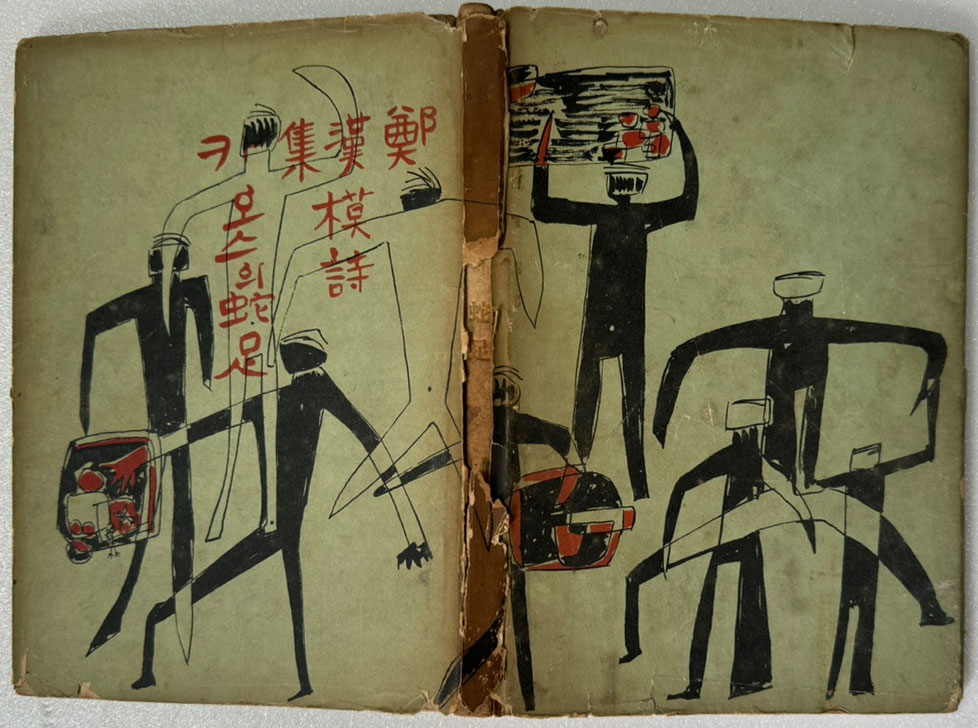 鄭
漢模詩
集
카오스의蛇足
蛇足